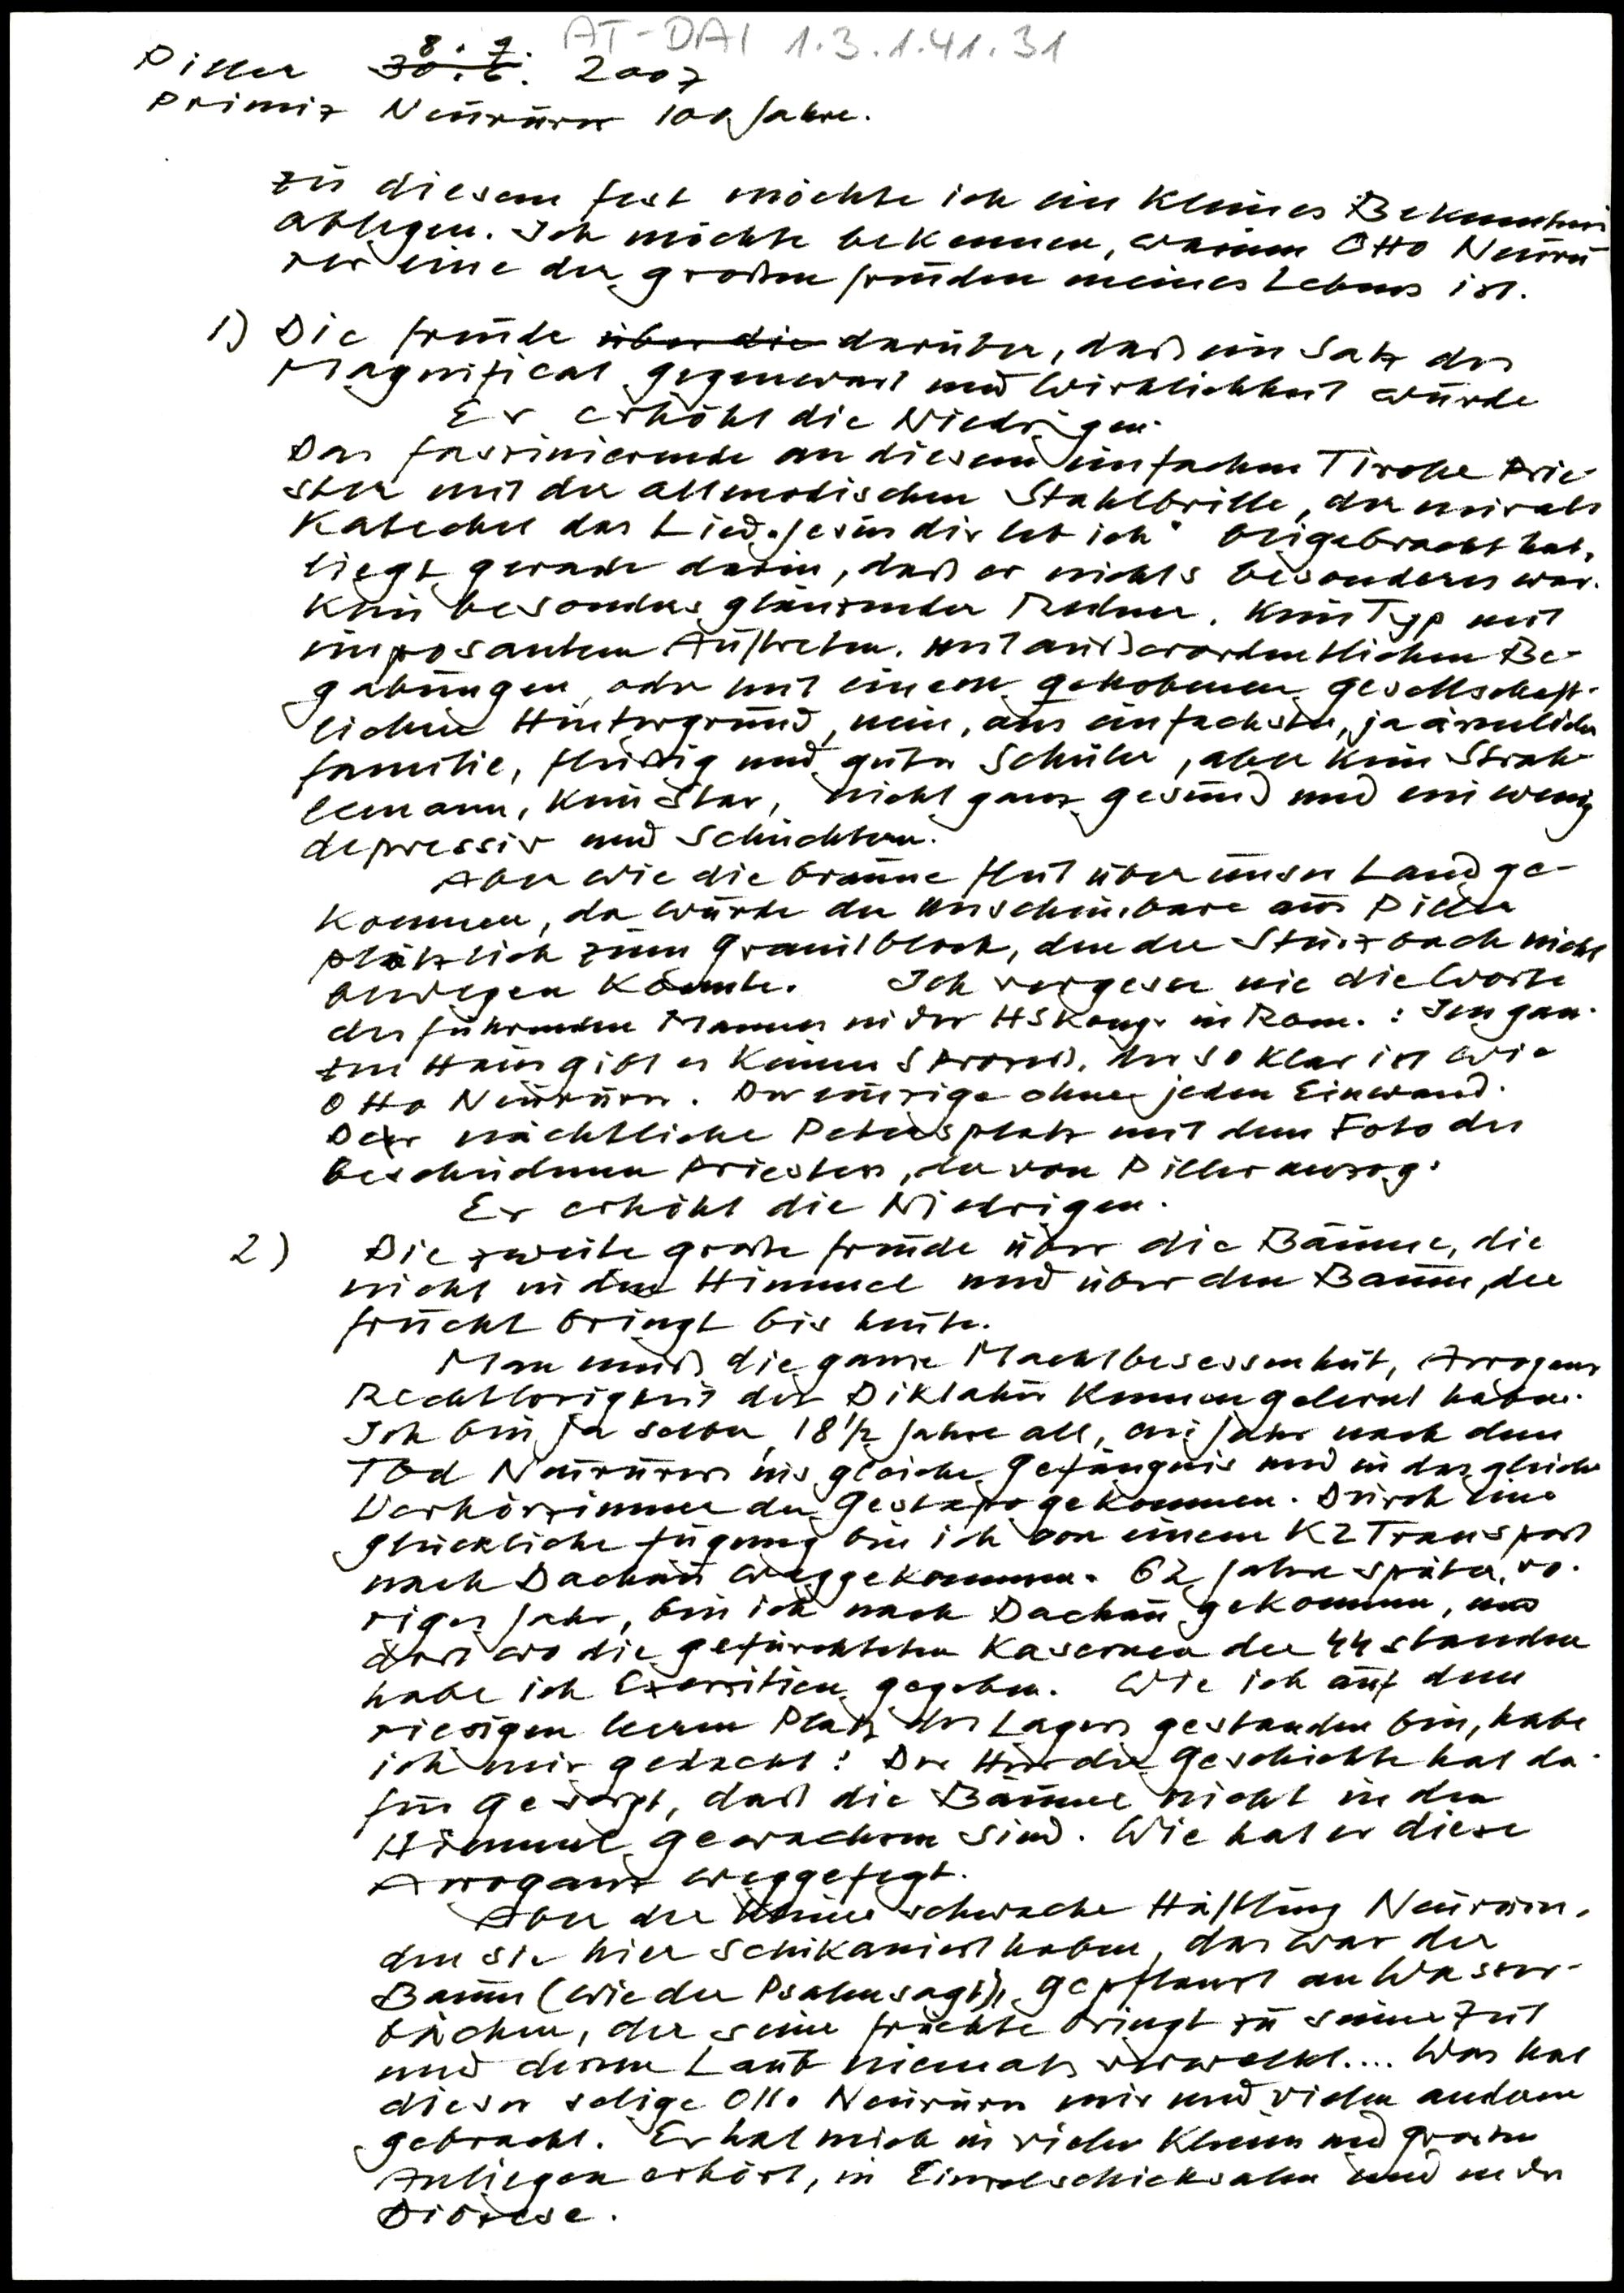 AT-DAI 1.3.1.41.31
8. 7.
Piller 30.6. 2007
Primiz Neururer 100 Jahre.
Zu diesem Fest möchte ich ein kleines Bekenntnis
ablegen. Ich möchte bekennen, warum Otto Neuru
rer eine der großen Freuden meines Lebens ist.
1) Die Freude über die darüber, daß ein Satz des
Magnificat Gegenwart und Wirklichkeit wurde
Er erhöht die Niedrigen.
Das faszinierende an diesem einfachen Tiroler Prie-
ster mit der altmodischen Stahlbrille, der mir als
Katechet das Lied "Jesus dir leb ich" beigebracht hat,
liegt gerade darin, daß er nichts besonderes war.
Kein besonders glänzender Redner. Kein Typ mit
imposantem Auftreten. mit außerordentlichen Be-
gabungen, oder mit einem gehobenen gesellschaft-
lichen Hintergrund, nein, aus einfachster, ja ärmlicher
Familie, fleißig und guter Schüler, aber kein Strah-
lemann, kein Star, nicht ganz gesund und ein wenig
depressiv und schüchtern.
Aber wie die braune Flut über unser Land ge-
kommen, da wurde der unscheinbare aus Piller
plötzlich zum Granitblock, den der Sturzbach nicht
bewegen konnte. Ich vergesse nie die Worte
des führenden Mannes in der HSKongr. in Rom.: Im gan-
zen Haus gibt es keinen Prozeß, der so klar ist wie
Otto Neururer. Der einzige ohne jeden Einwand.
Der nächtliche Petersplatz mit dem Foto des
bescheidenen Priesters, der von Piller auszog:
Er erhöht die Niedrigen.
2) Die zweite große Freude über die Bäume, die
nicht in den Himmel und über den Baum, der
Frucht bringt bis heute.
Man muß die ganze Machtbesessenheit, Arroganz
Rechtlosigkeit der Diktatur kennen gelernt haben.
Ich bin ja selber, 18 1/2 Jahre alt, ein Jahr nach dem
Tod Neururers ins gleiche Gefängnis und in das gleiche
Verhörzimmer der Gestapo gekommen. Durch eine
glückliche Fügung bin ich von einem KZ Transport
nach Dachau weggekommen. 62 Jahre später, vo-
riges Jahr, bin ich nach Dachau gekommen, und
dort wo die gefürchteten Kasernen der SS standen
habe ich Exerzitien gegeben. Wie ich auf dem
riesigen leeren Platz des Lagers gestanden bin, habe
ich mir gedacht: Der Herr der Geschichte hat da-
für gesorgt, daß die Bäume nicht in den
Himmel gewachsen sind. Wie hat er diese
Arroganz weggefegt.
Aber der kleine schwache Häftling Neururer,
den sie hier schikaniert haben, das war der
Baum (wie der Psalm sagt), gepflanzt an Wasser-
bächen, der seine Früchte bringt zu seiner Zeit
und dessen Laub niemals verwelkt.... Was hat
dieser selige Otto Neururer mir und vielen anderen
gebracht. Er hat mich in vielen kleinen und großen
Anliegen erhört, in Einzelschicksalen und in der
Diözese.